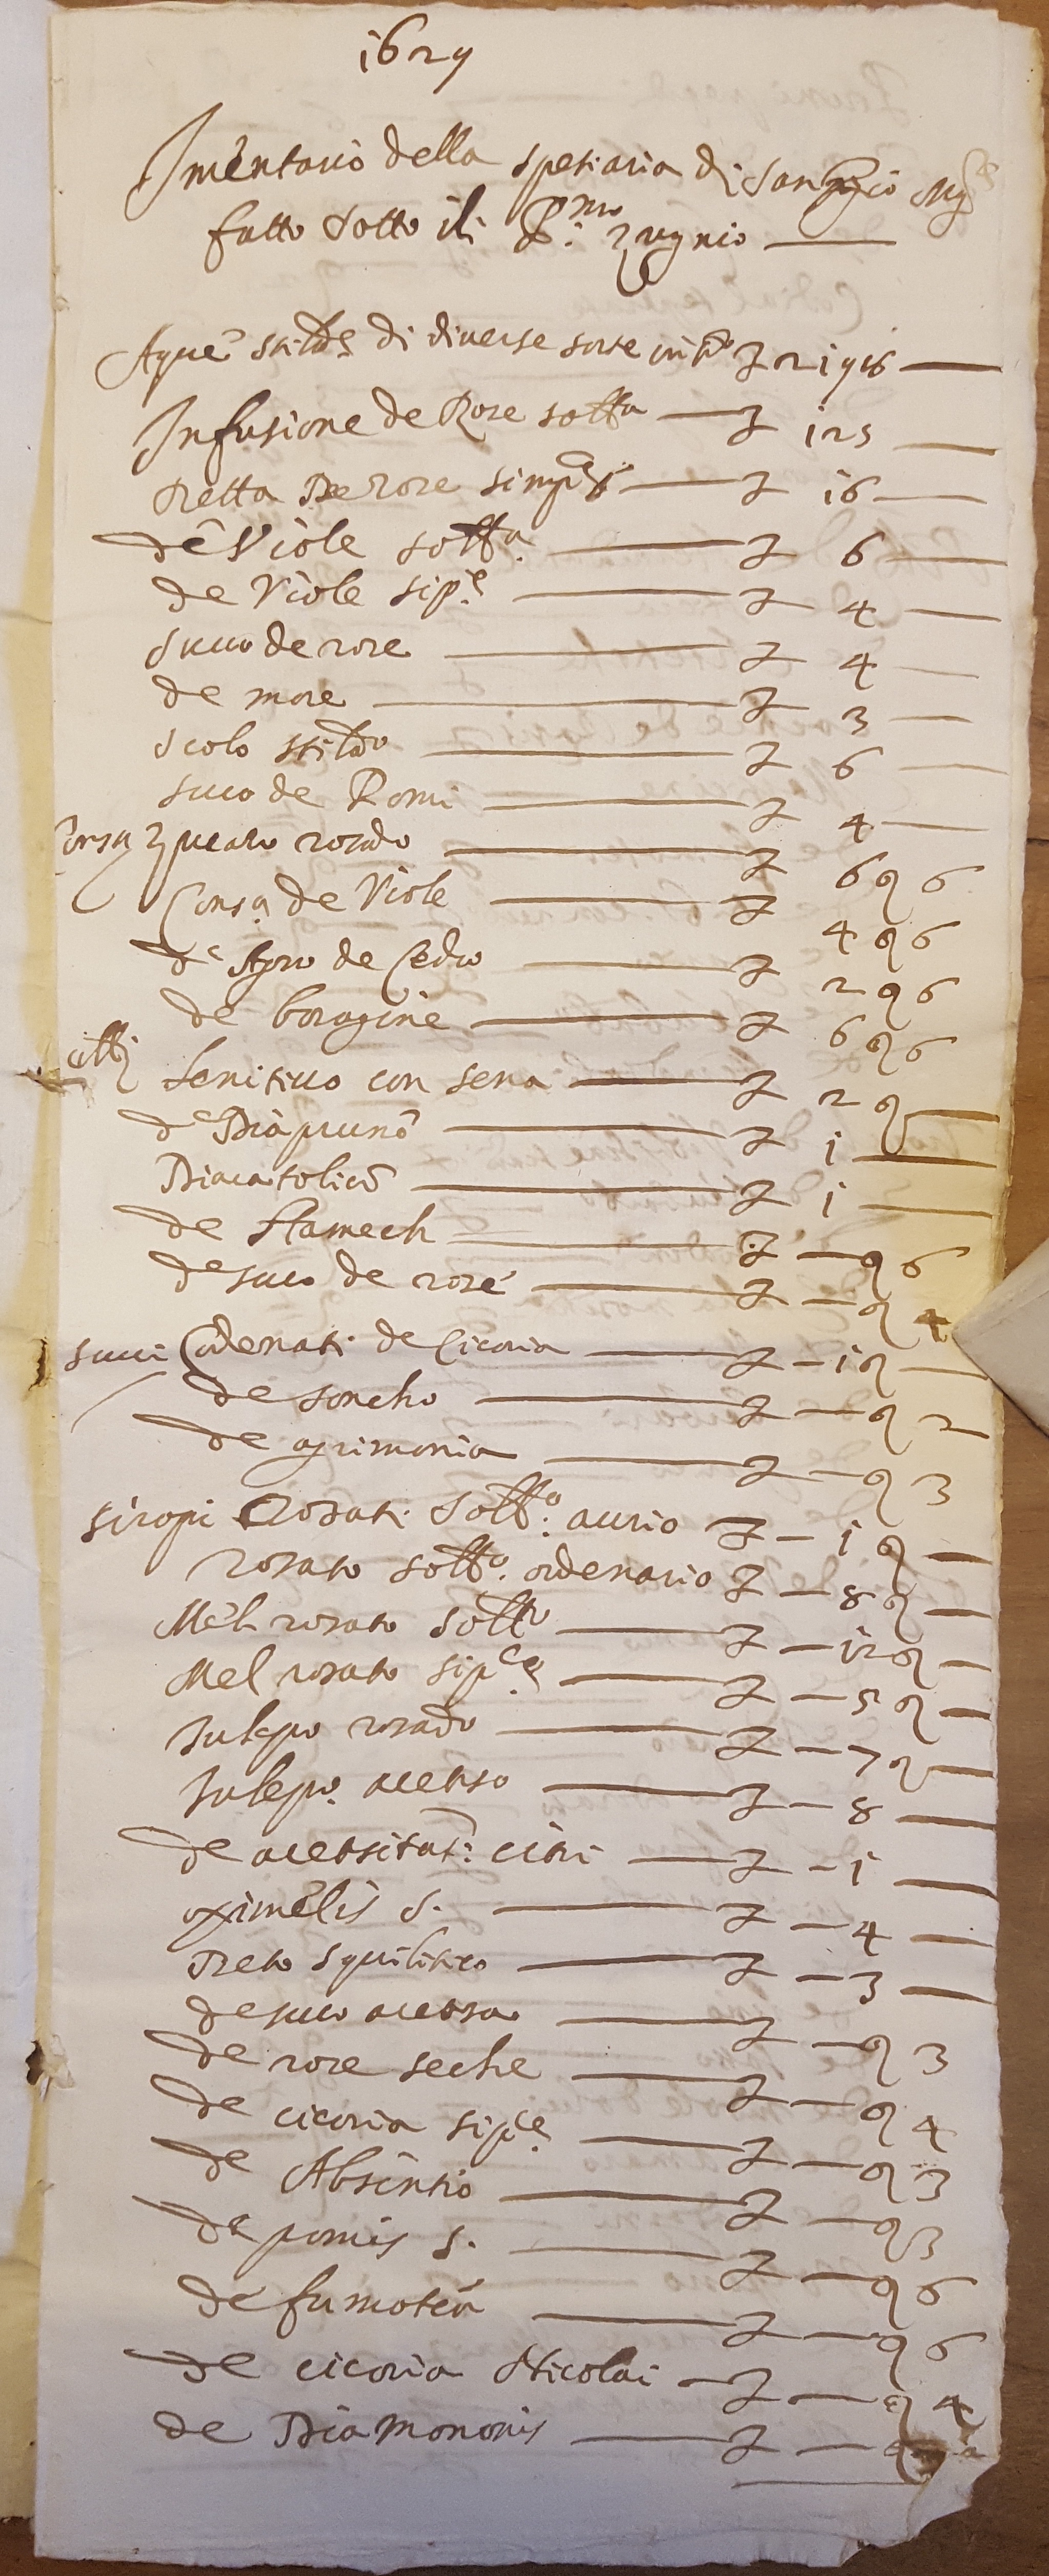 1629
Inventario della spetiaria di San Mag.re
fatto sotto il P.mo zugnio
Aque stilde di diverse sorte in tto £ 219 ß
Infusione de Rose sotta £ 125
Detta De rose simp £ 16
de Viole sotta £ 6
de Viole sip.e £ 4
Suco de rose £ 4
de more £ 3
Scolo stildo £ 6
suco de Pomi £ 4
Consa zucaro rosado £ 6 q 6
Consa de Viole £ 4 q 6
de Agro de Cedro £ 2 q 6
de boragine £ 6 q 6
Lenitivo con sena £ 2 q
de Diapruno £ 1
Diacatolico £ 1
de Hamech £ q 6
de suco de rose £ q 4
succi Codenati de Cicoria £ 1 q
de soncho £ q 2
de agrimonia £ q 3
siropi Rosati Sott.o aurio £ 1 q
rosato sotto. ordenario £ 8 q
Mel rosato sotto £ 12 q
Mel rosato sip.ce £ 5 q
Julepo rosado £ 7 q
Julepo acetoso £ 8
de acetositat: citri £ 1
oximelis s. £ 4
Deto squilitico £ 3
de suco acetosa £ q 3
de rose seche £ q 4
de cicoria sip.ce £ q 3
de Absintio £ q 3
de pomis s. £ q 6
de fumotera £ q 6
de cicoria Nicolai £ q 4
de Dia Mononis £